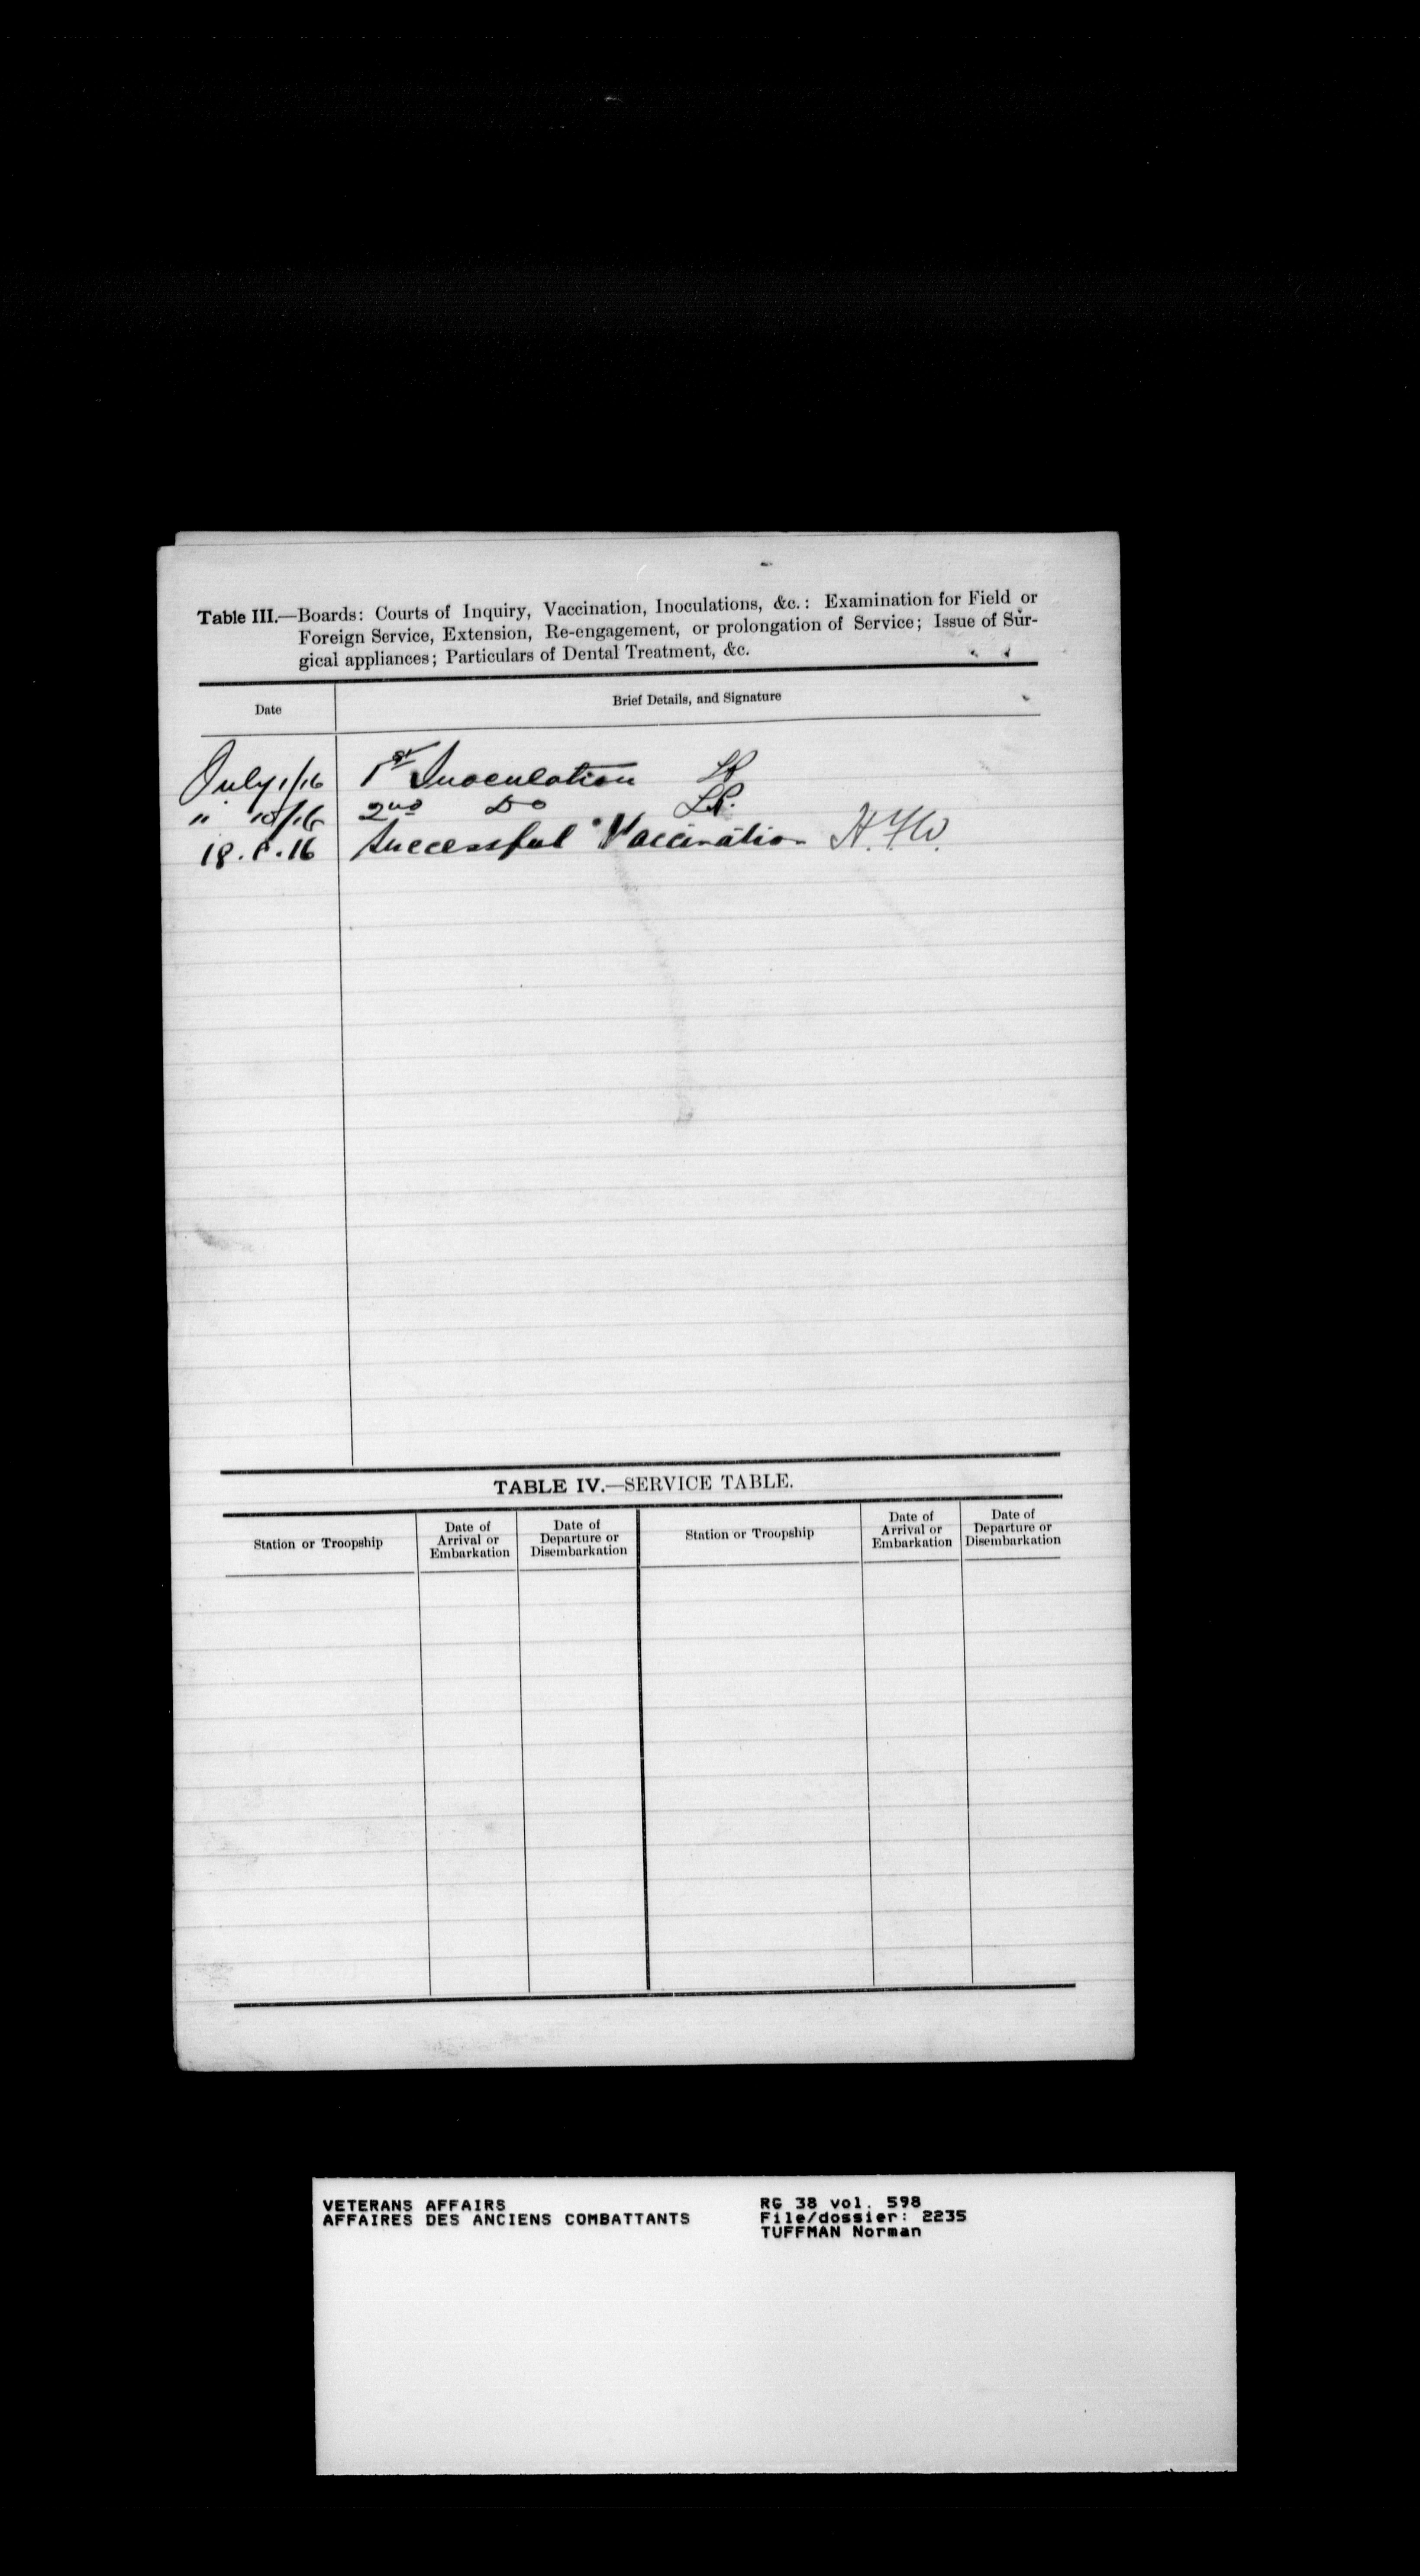 Table III.—Boards: Courts of Inquiry, Vaccination, Inoculations, &c.: Examination for Field or
Foreign Service, Extension, Re-engagement, or prolongation of Service; Issue of Sur-
gical appliances; Particulars of Dental Treatment, &c.
Date Brief Details, and Signature
July 1/16 1st Inoculation
" 10/16 2nd Do
18.8.16 Successful Vaccination H.F.W.
TABLE IV.—SERVICE TABLE.
Station or Troopship Date of Arrival or Embarkation Date of Departure or Disembarkation Station or Troopship Date of Arrival or Embarkation Date of Departure or Disembarkation
VETERANS AFFAIRS RG 38 vol. 598
AFFAIRES DES ANCIENS COMBATTANTS File/dossier: 2235
TUFFMAN Norman